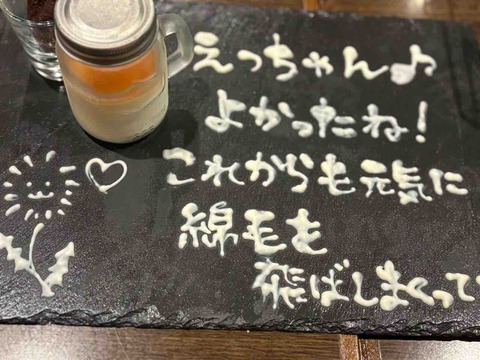 えっちゃん♪
よかったね!
これからも元気に
綿毛を
飛ばしまくって